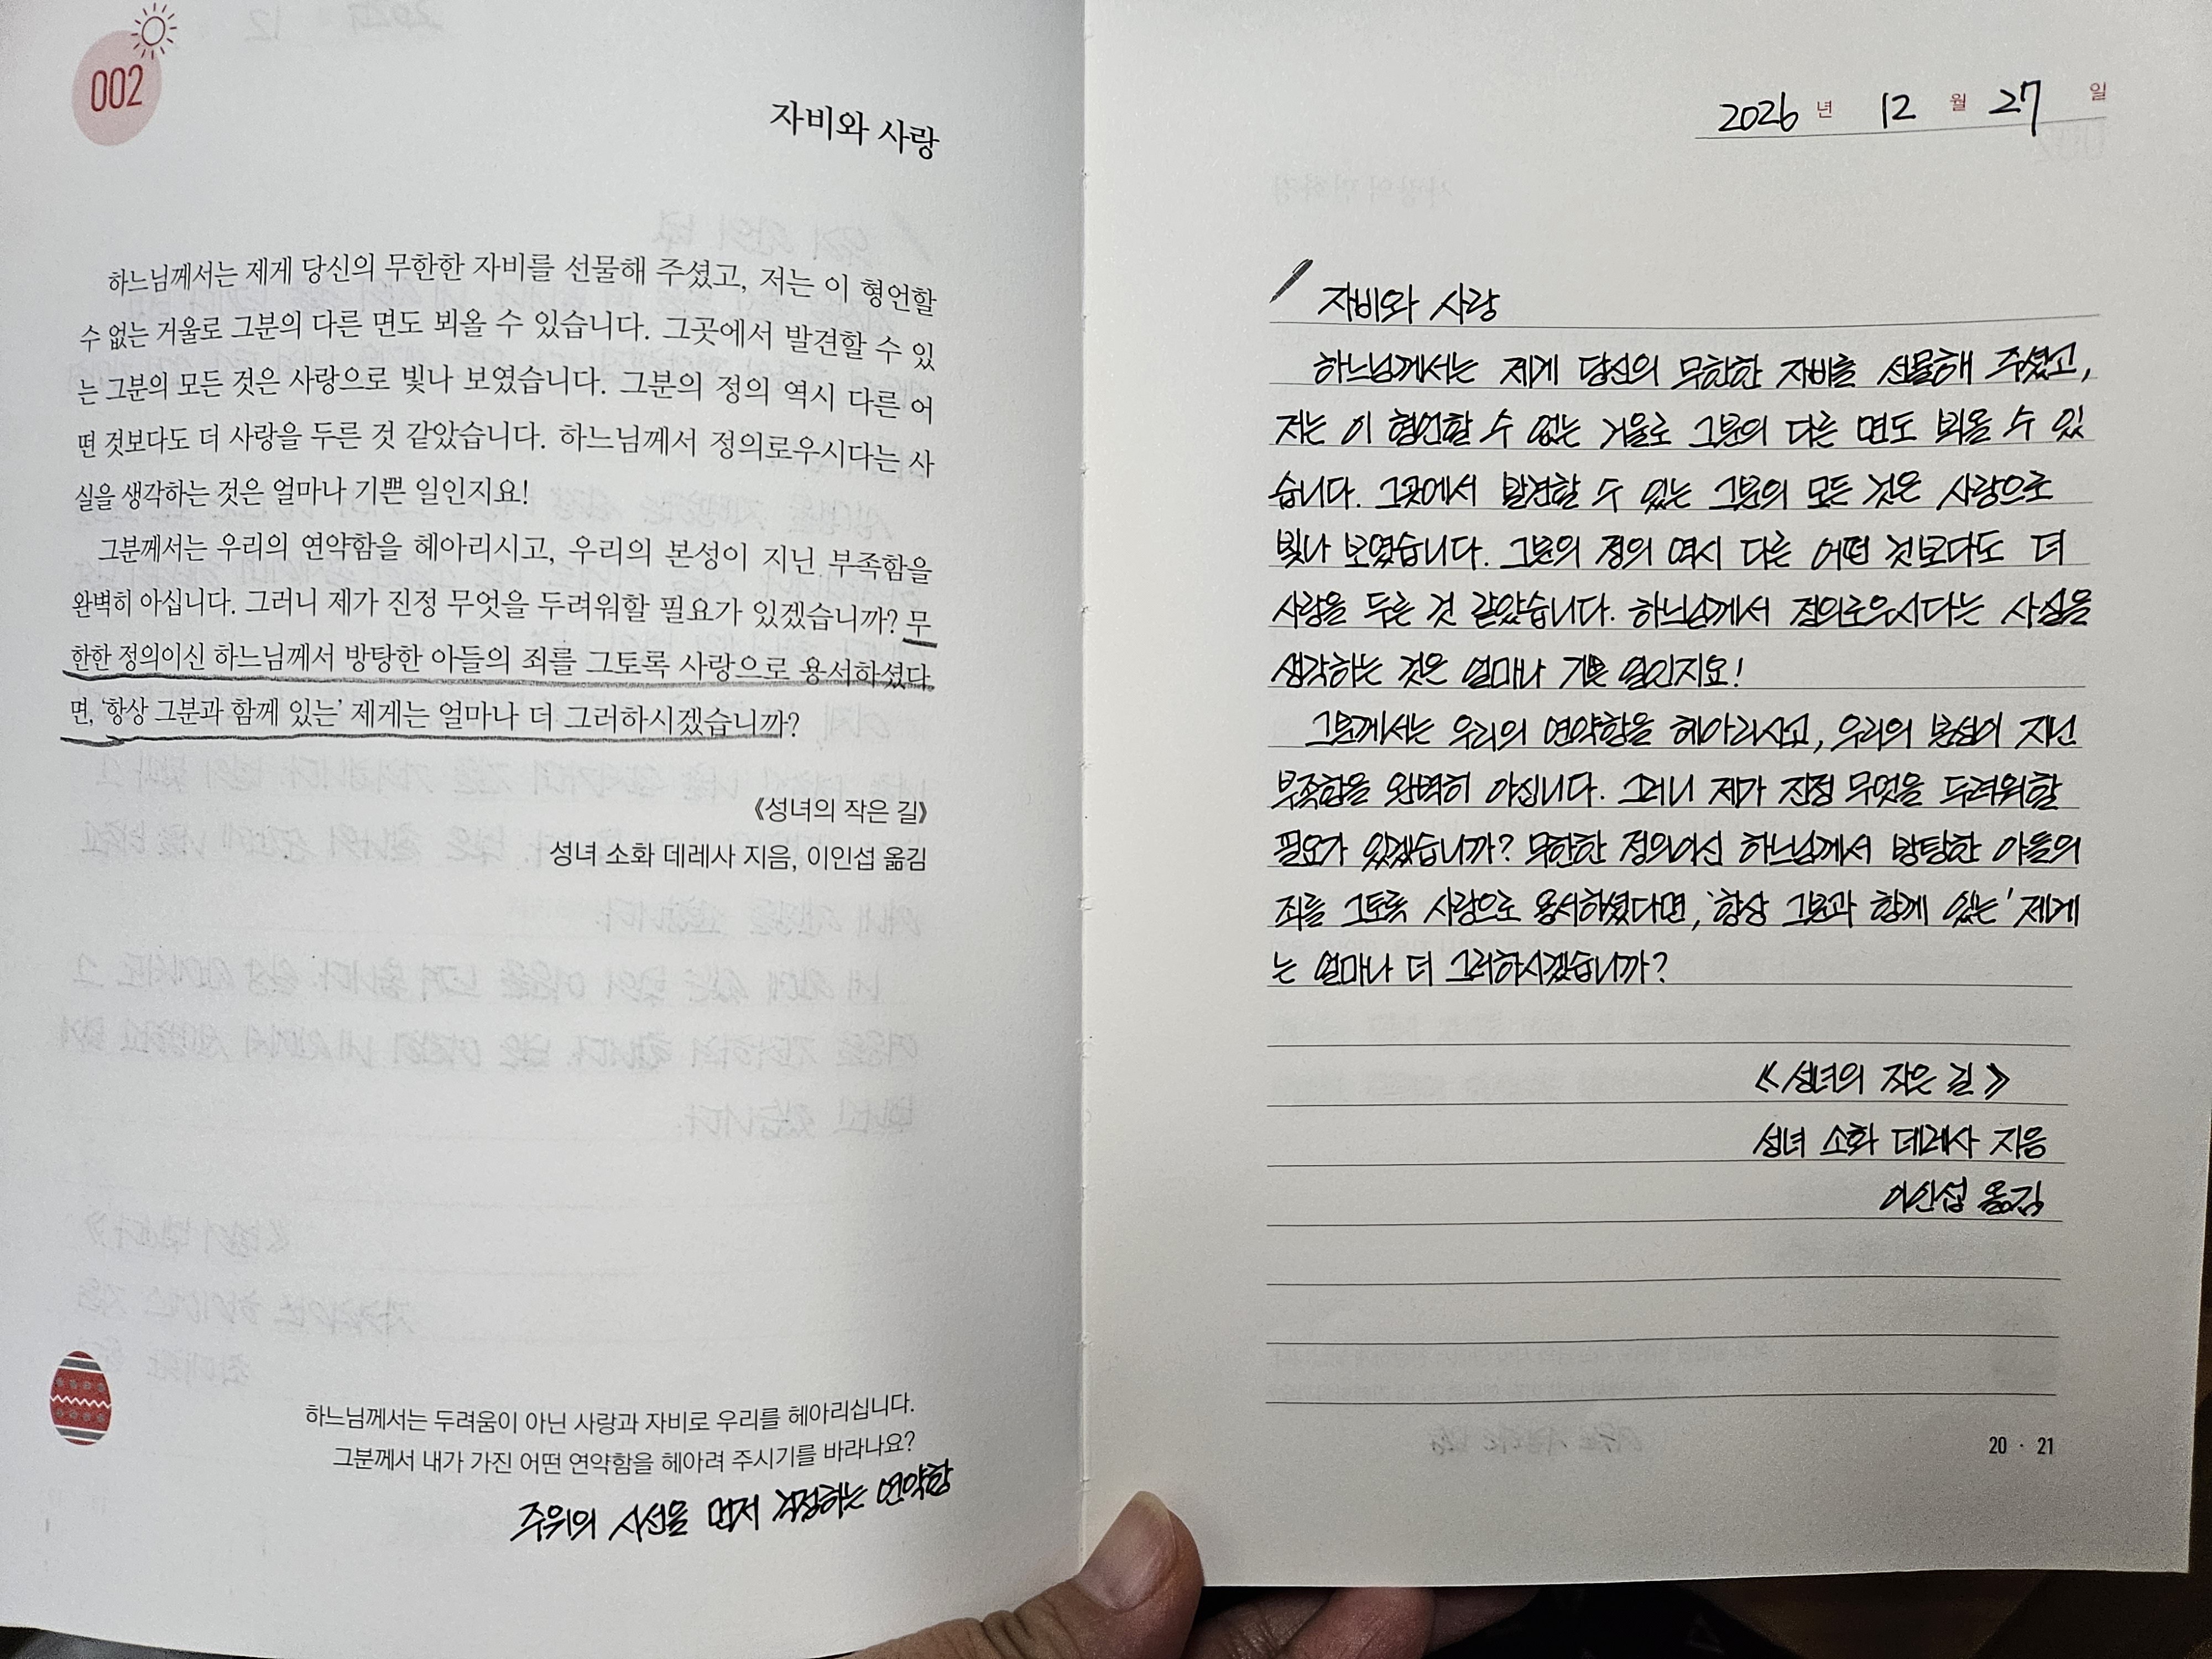 002
자비와 사랑
하느님께서는 제게 당신의 무한한 자비를 선물해 주셨고, 저는 이 형언할
수 없는 거울로 그분의 다른 면도 뵈올 수 있습니다. 그곳에서 발견할 수 있
는 그분의 모든 것은 사랑으로 빛나 보였습니다. 그분의 정의 역시 다른 어
떤 것보다도 더 사랑을 두른 것 같았습니다. 하느님께서 정의로우시다는 사
실을 생각하는 것은 얼마나 기쁜 일인지요!
그분께서는 우리의 연약함을 헤아리시고, 우리의 본성이 지닌 부족함을
완벽히 아십니다. 그러니 제가 진정 무엇을 두려워할 필요가 있겠습니까? 무
한한 정의이신 하느님께서 방탕한 아들의 죄를 그토록 사랑으로 용서하셨다
면, ‘항상 그분과 함께 있는’ 제게는 얼마나 더 그러하시겠습니까?
《성녀의 작은 길》
성녀 소화 데레사 지음, 이인섭 옮김
하느님께서는 두려움이 아닌 사랑과 자비로 우리를 헤아리십니다.
그분께서 내가 가진 어떤 연약함을 헤아려 주시기를 바라나요?
주위의 시선을 먼저 걱정하는 연약함
2026 년 12 월 27 일
자비와 사랑
하느님께서는 제게 당신의 무한한 자비를 선물해 주셨고,
저는 이 형언할 수 없는 거울로 그분의 다른 면도 뵈올 수 있
습니다. 그곳에서 발견할 수 있는 그분의 모든 것은 사랑으로
빛나 보였습니다. 그분의 정의 역시 다른 어떤 것보다도 더
사랑을 두른 것 같았습니다. 하느님께서 정의로우시다는 사실을
생각하는 것은 얼마나 기쁜 일인지요!
그분께서는 우리의 연약함을 헤아리시고, 우리의 본성이 지닌
부족함을 완벽히 아십니다. 그러니 제가 진정 무엇을 두려워할
필요가 있겠습니까? 무한한 정의이신 하느님께서 방탕한 아들의
죄를 그토록 사랑으로 용서하셨다면, ‘항상 그분과 함께 있는’ 제게
는 얼마나 더 그러하시겠습니까?
《성녀의 작은 길》
성녀 소화 데레사 지음
이인섭 옮김
20 · 21